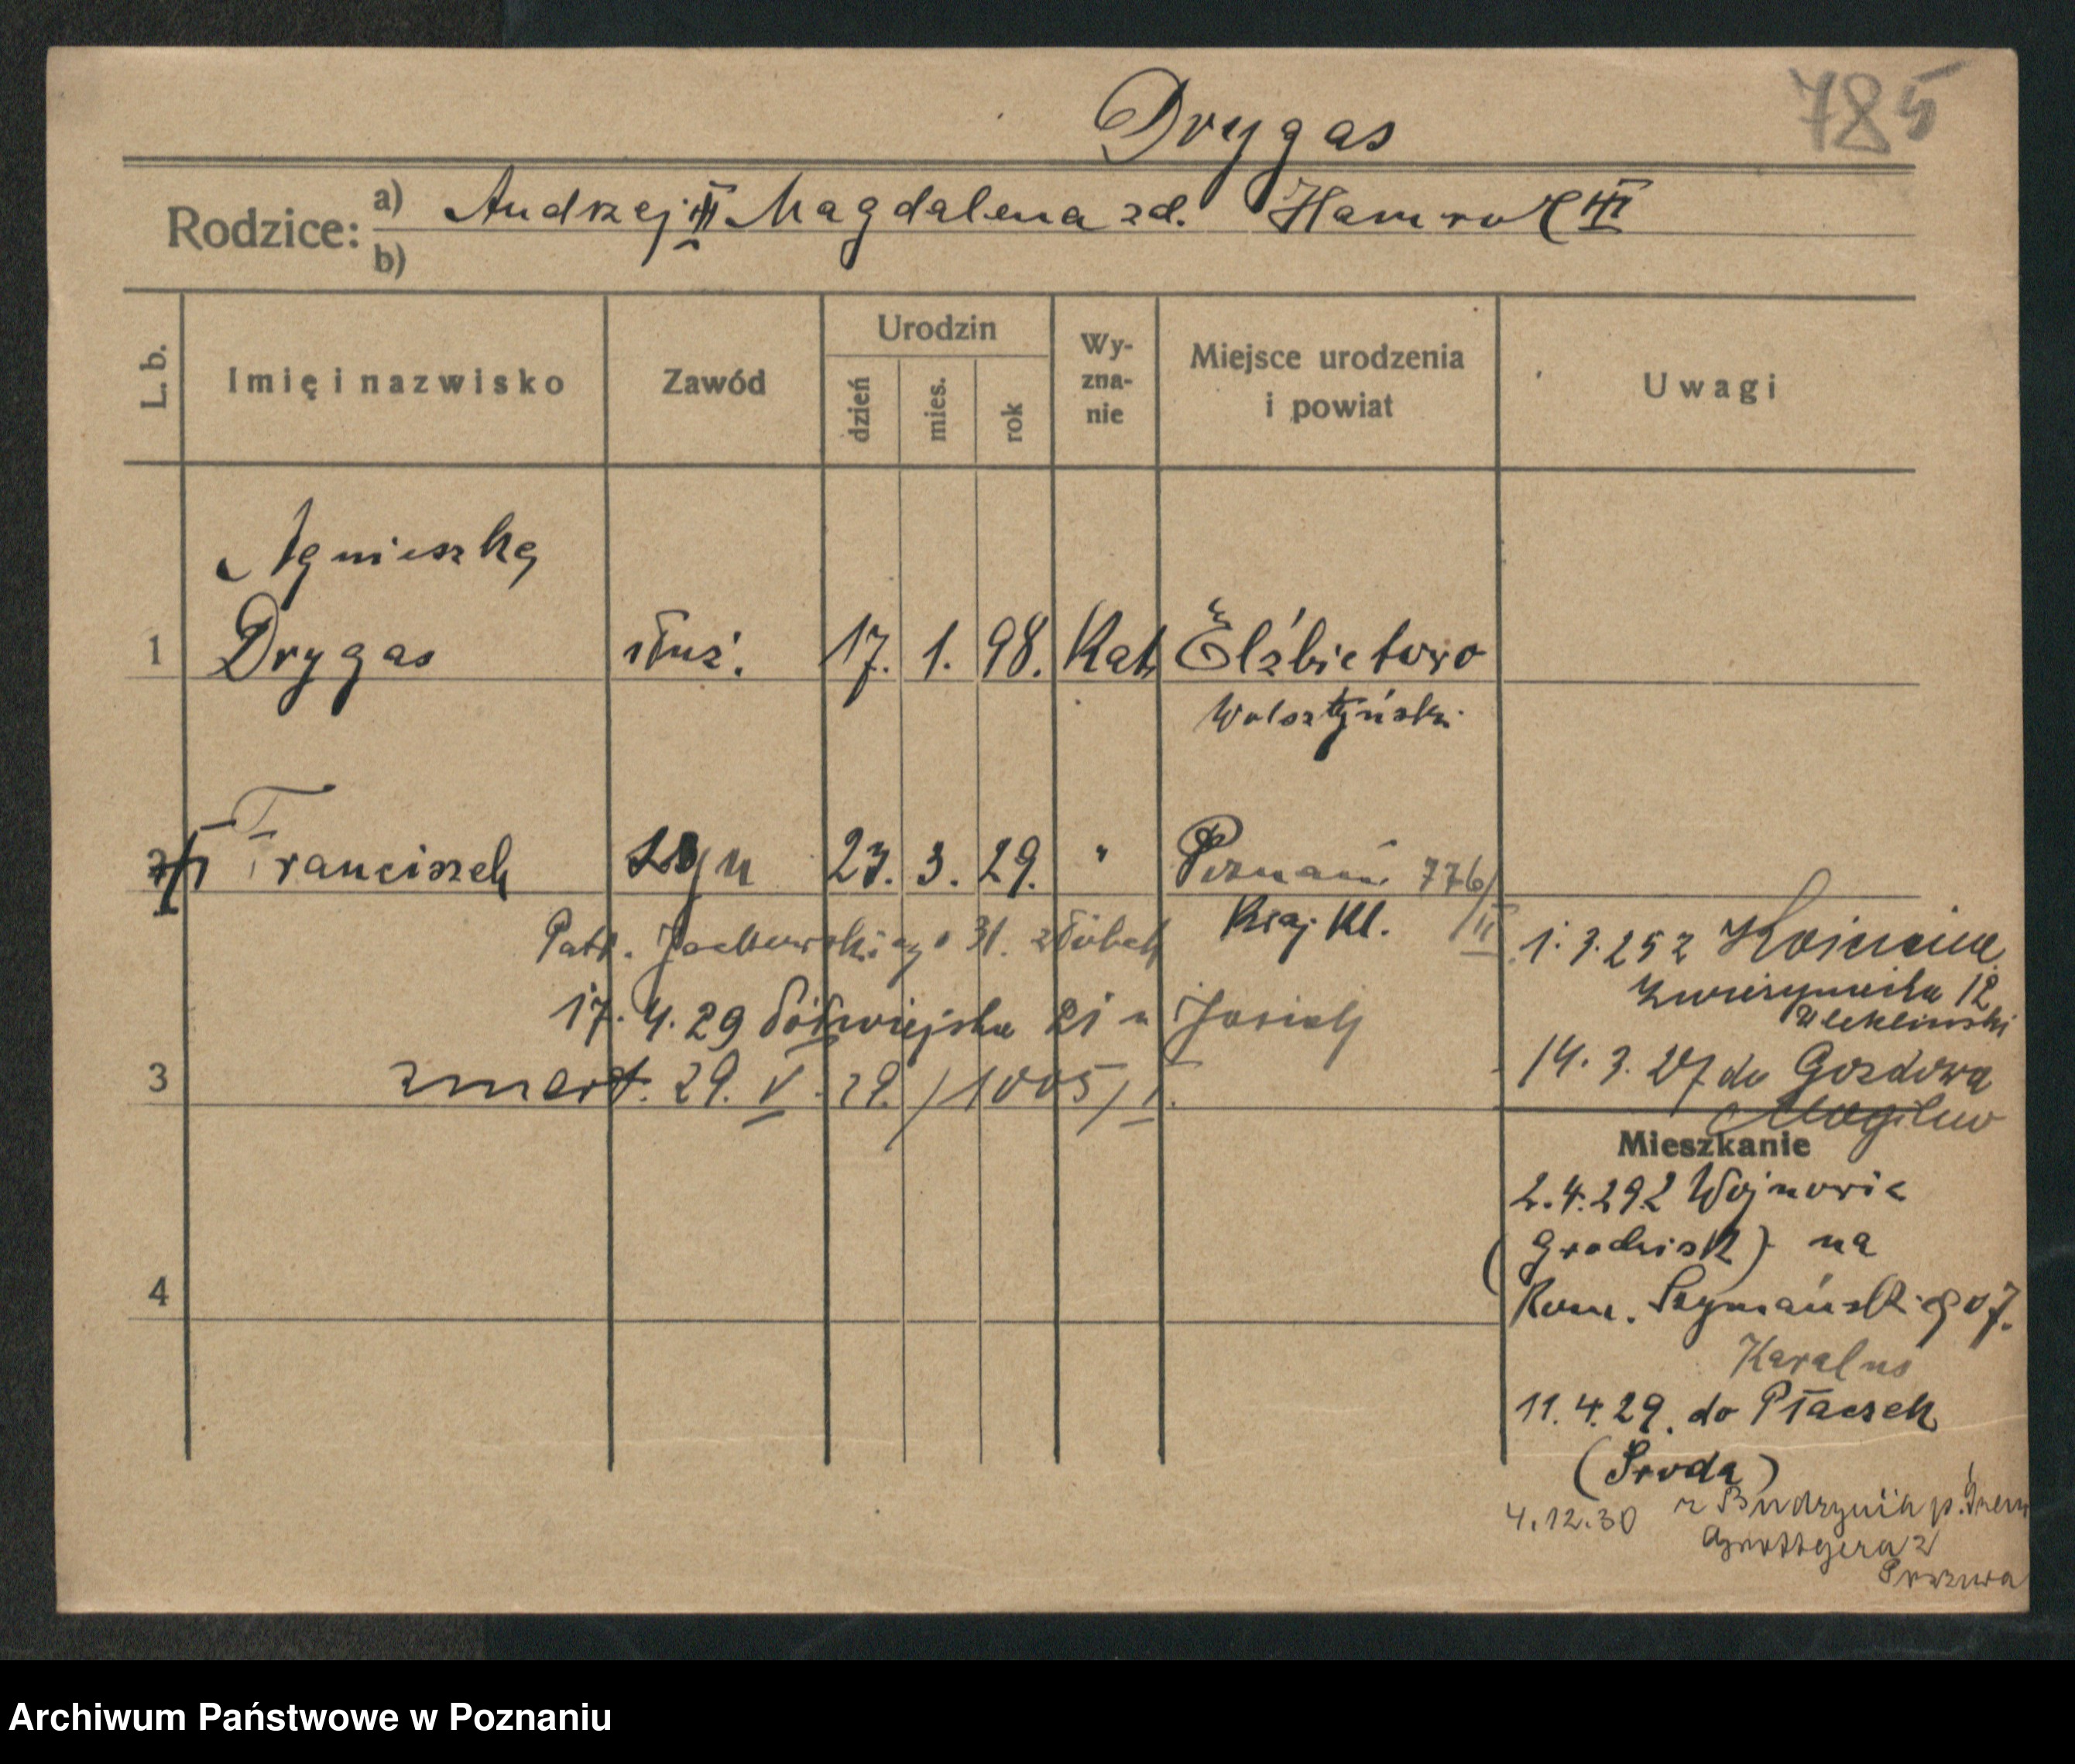 785
Drygas
Rodzice: a) Andrzej III Magdalena zd. Hamrol III
b)
L. b.
Imię i nazwisko
Zawód
Urodzin
dzień
mies.
rok
Wy-
zna-
nie
Miejsce urodzenia
i powiat
Uwagi
Agnieszka
1 Drygas służ. 17. 1. 98. Kat. Elżbietowo
Wolsztyński
2 Franciszek syn 23. 3. 29. " Poznań 776/
Kraj. Kl. /II
Patr. Jackowskiego 31. żłóbek
17. 4. 29 Półwiejska 21
3 zmarł. 29. V. 29. /1005/I.
4
1. 3. 25 z
12
14. 3. 27 do Gozdowa
Mogilno
Mieszkanie
2. 4. 29 z Wojnowic
(Grodzisk) na
Rom. Szymańskiego 7.
Karalus
11. 4. 29. do Płaczek
(Środa)
4.12.30 z
Archiwum Państwowe w Poznaniu